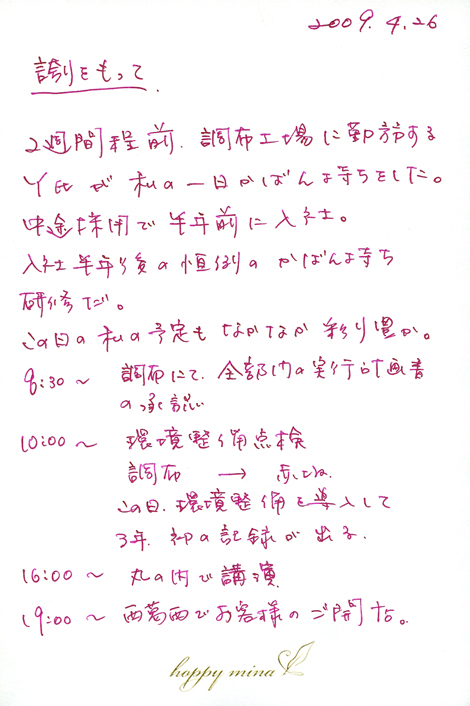 2009.4.26
誇りをもって.
2週間程前、調布工場に勤務する
Y氏が私の一日かばん持ちをした。
中途採用で半年前に入社。
入社半年後の恒例のかばん持ち
研修だ。
この日の私の予定もなかなか彩り豊か。
8:30〜 調布にて、全部門の実行計画書
の承認
10:00〜 環境整備点検
調布 →
この日、環境整備を導入して
3年、初の記録が出る、
16:00〜 丸の内で講演
19:00〜 西葛西でお客様のご開店。
happy mina